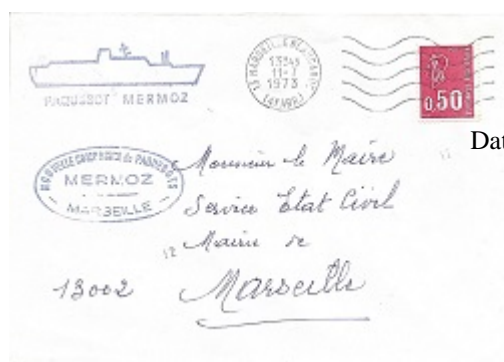 PAQUEBOT MERMOZ
13H45
11-7
1973
0,50
Dat
NOUVELLE COMPAGNIE de PAQUEBOTS
MERMOZ
MARSEILLE
Monsieur le Maire
Service Etat Civil
Mairie de
13002 Marseille